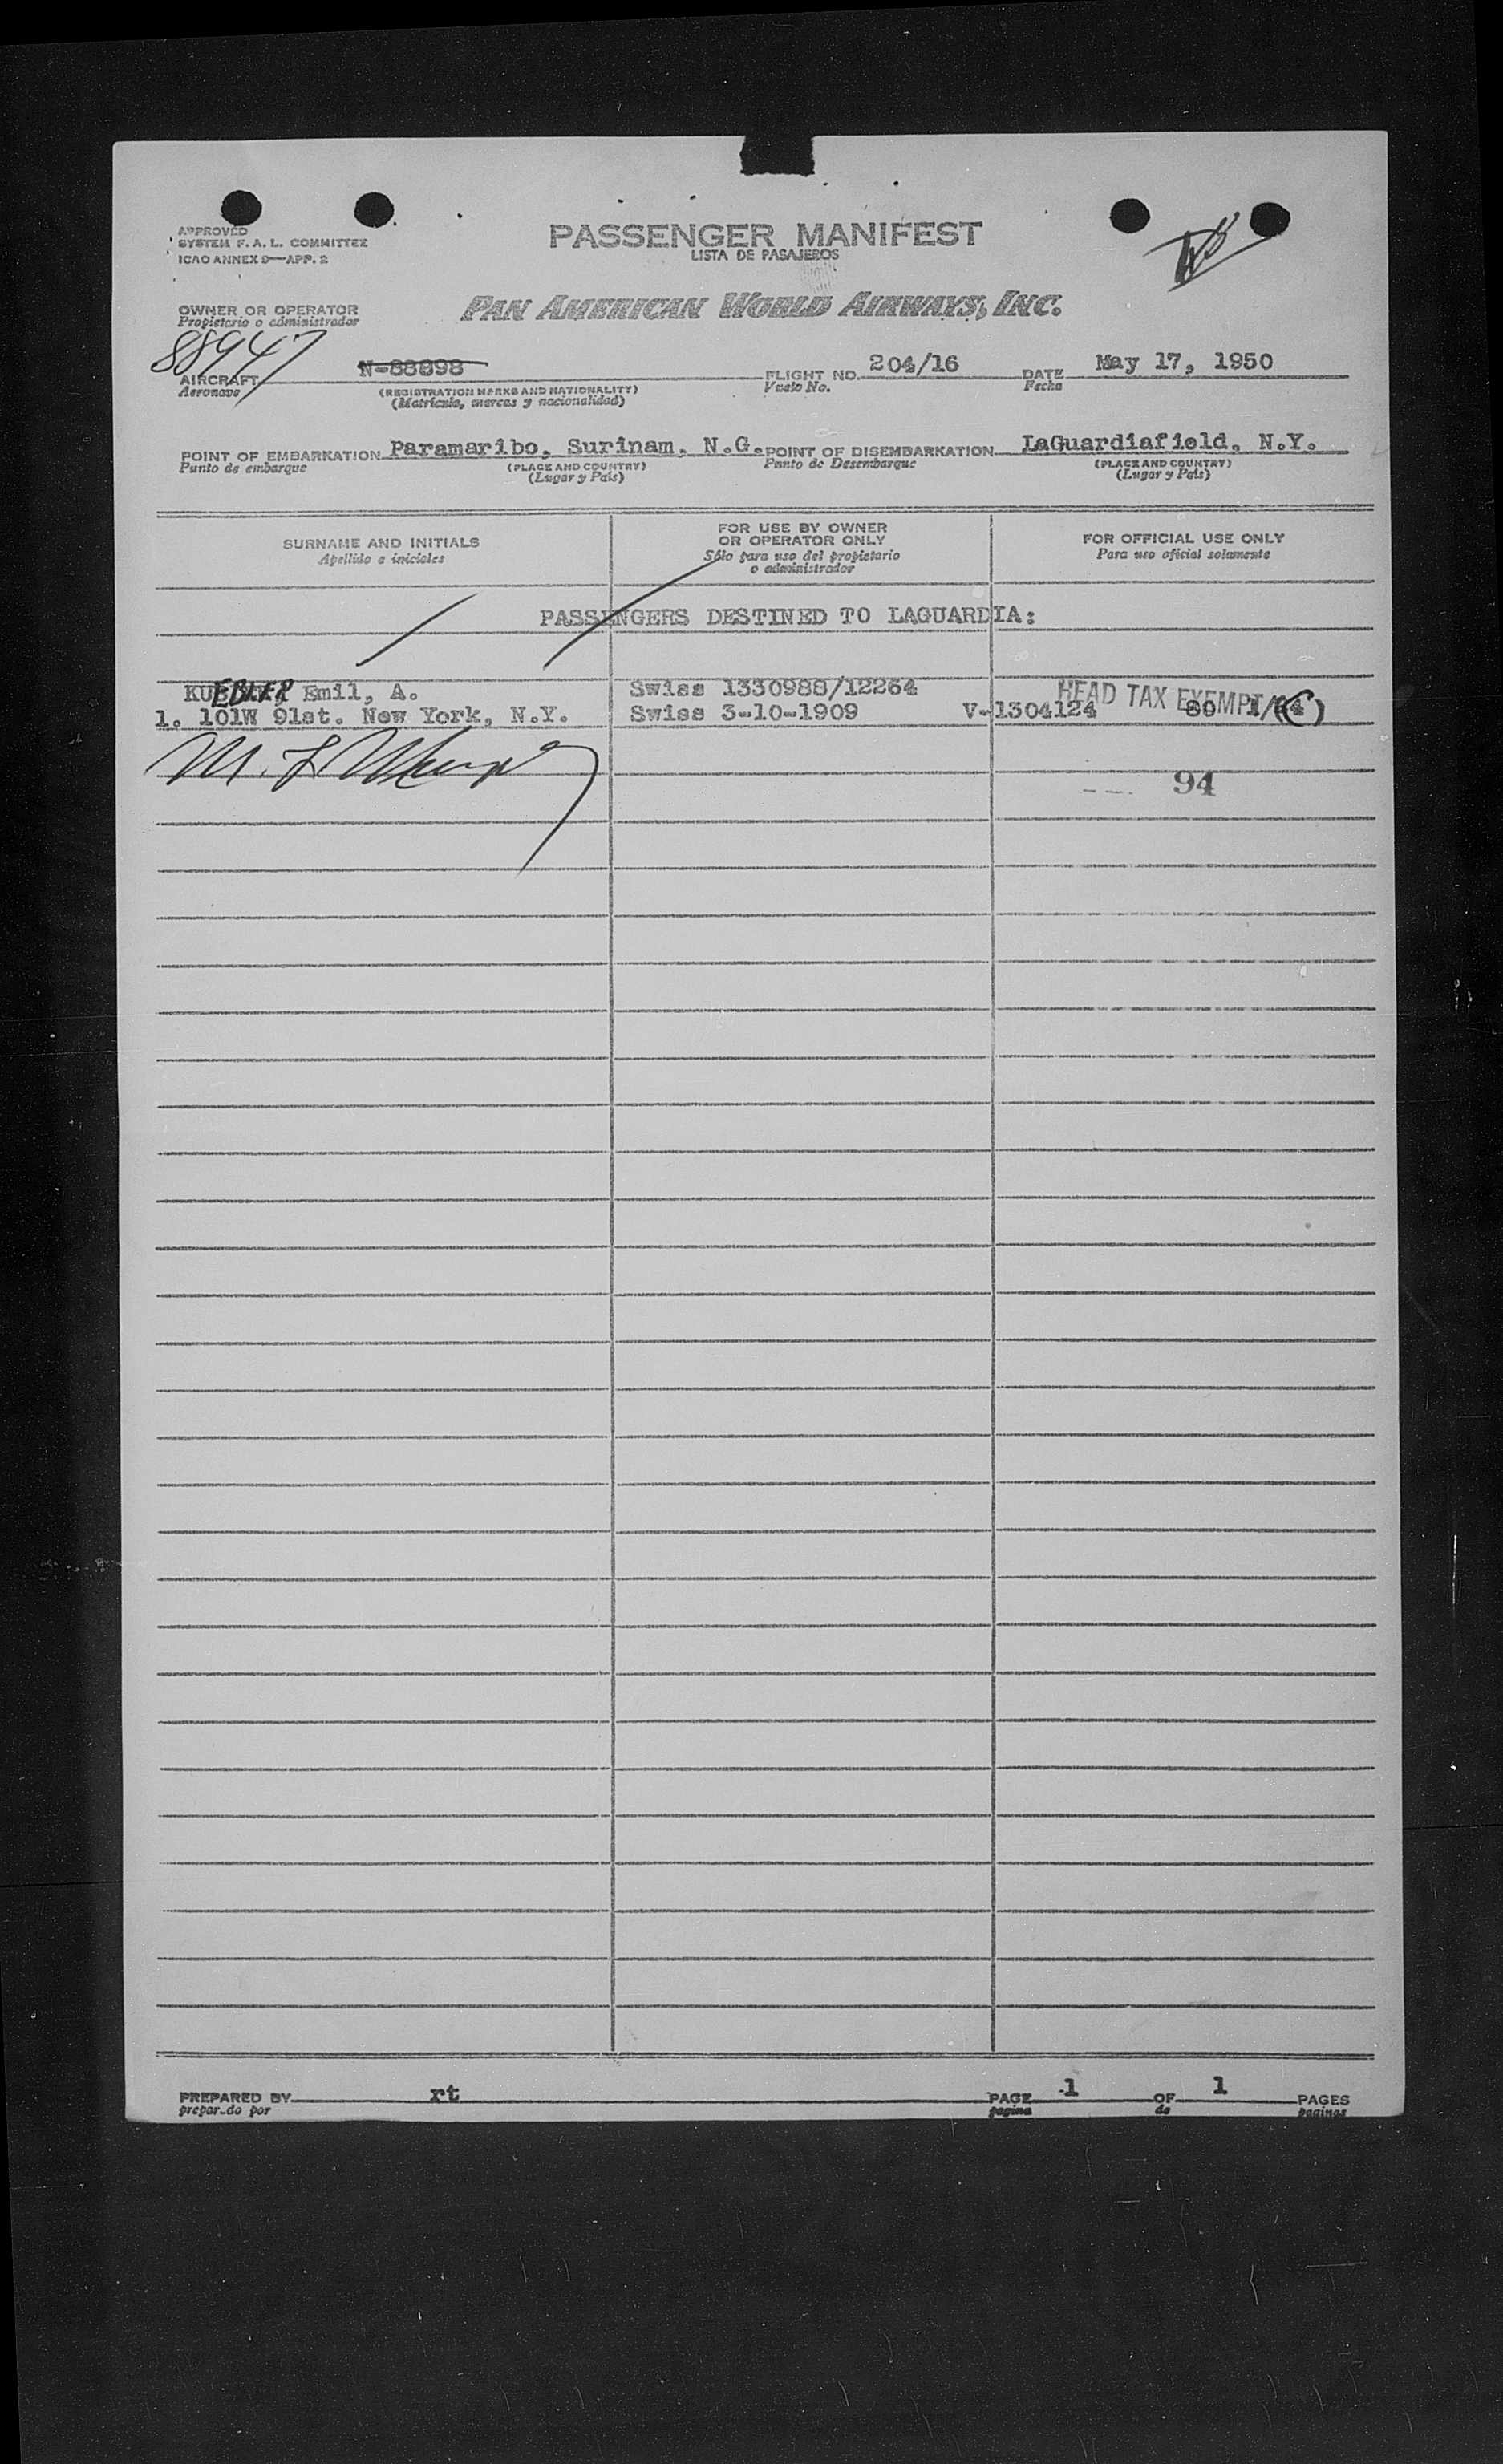 APPROVED
SYSTEM F. A. L. COMMITTEE
ICAO ANNEX 9—APP. 2
PASSENGER MANIFEST
LISTA DE PASAJEROS
OWNER OR OPERATOR
Propietario o administrador
PAN AMERICAN WORLD AIRWAYS, INC.
88947
AIRCRAFT N-88898
Aeronave
(REGISTRATION MARKS AND NATIONALITY)
(Matrícula, marcas y nacionalidad)
FLIGHT NO. 204/16
Vuelo No.
DATE May 17, 1950
Fecha
POINT OF EMBARKATION Paramaribo, Surinam, N.G.
Punto de embarque
(PLACE AND COUNTRY)
(Lugar y País)
POINT OF DISEMBARKATION LaGuardiafield, N.Y.
Punto de Desembarque
(PLACE AND COUNTRY)
(Lugar y País)
SURNAME AND INITIALS
Apellido e iniciales
FOR USE BY OWNER
OR OPERATOR ONLY
Sólo para uso del propietario
o administrador
FOR OFFICIAL USE ONLY
Para uso oficial solamente
PASSENGERS DESTINED TO LAGUARDIA:
KUEBLER Emil, A.
Swiss 1330988/12264
HEAD TAX EXEMPT
1. 101W 91st. New York, N.Y.
Swiss 3-10-1909
V-1304124
94
PREPARED BY rt
preparado por
PAGE 1 OF 1 PAGES
pagina de paginas